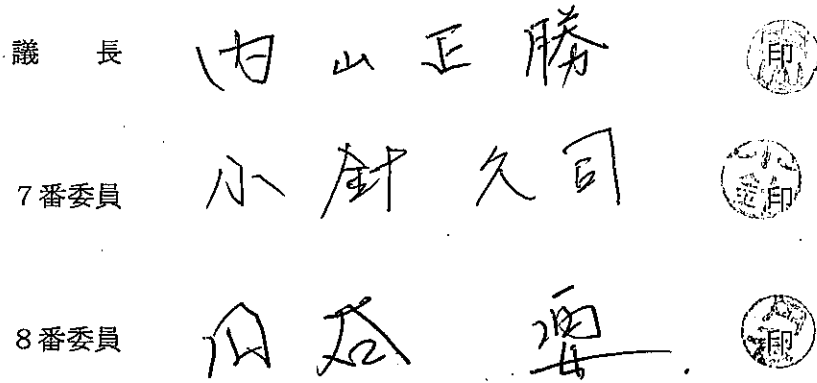 議長 内山正勝 印
7番委員 小針久司 印
8番委員 印